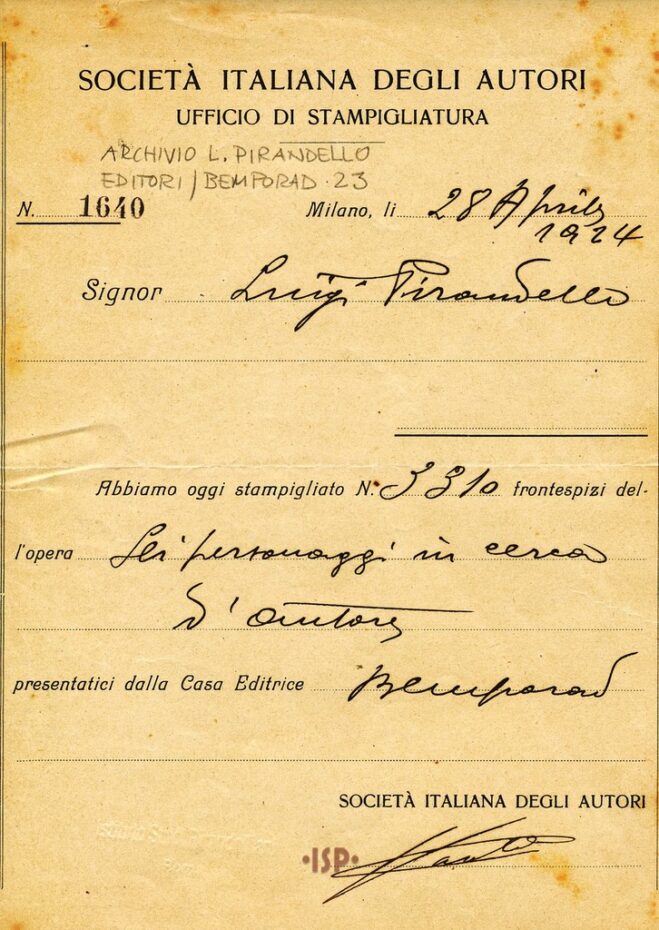 SOCIETÀ ITALIANA DEGLI AUTORI
UFFICIO DI STAMPIGLIATURA
ARCHIVIO L. PIRANDELLO
EDITORI / BEMPORAD · 23
N. 1640 Milano, li 28 Aprile
1924
Signor Luigi Pirandello
Abbiamo oggi stampigliato N. 3310 frontespizi del-
l'opera Sei personaggi in cerca
d'autore
presentatici dalla Casa Editrice Bemporad
SOCIETÀ ITALIANA DEGLI AUTORI
·ISP·